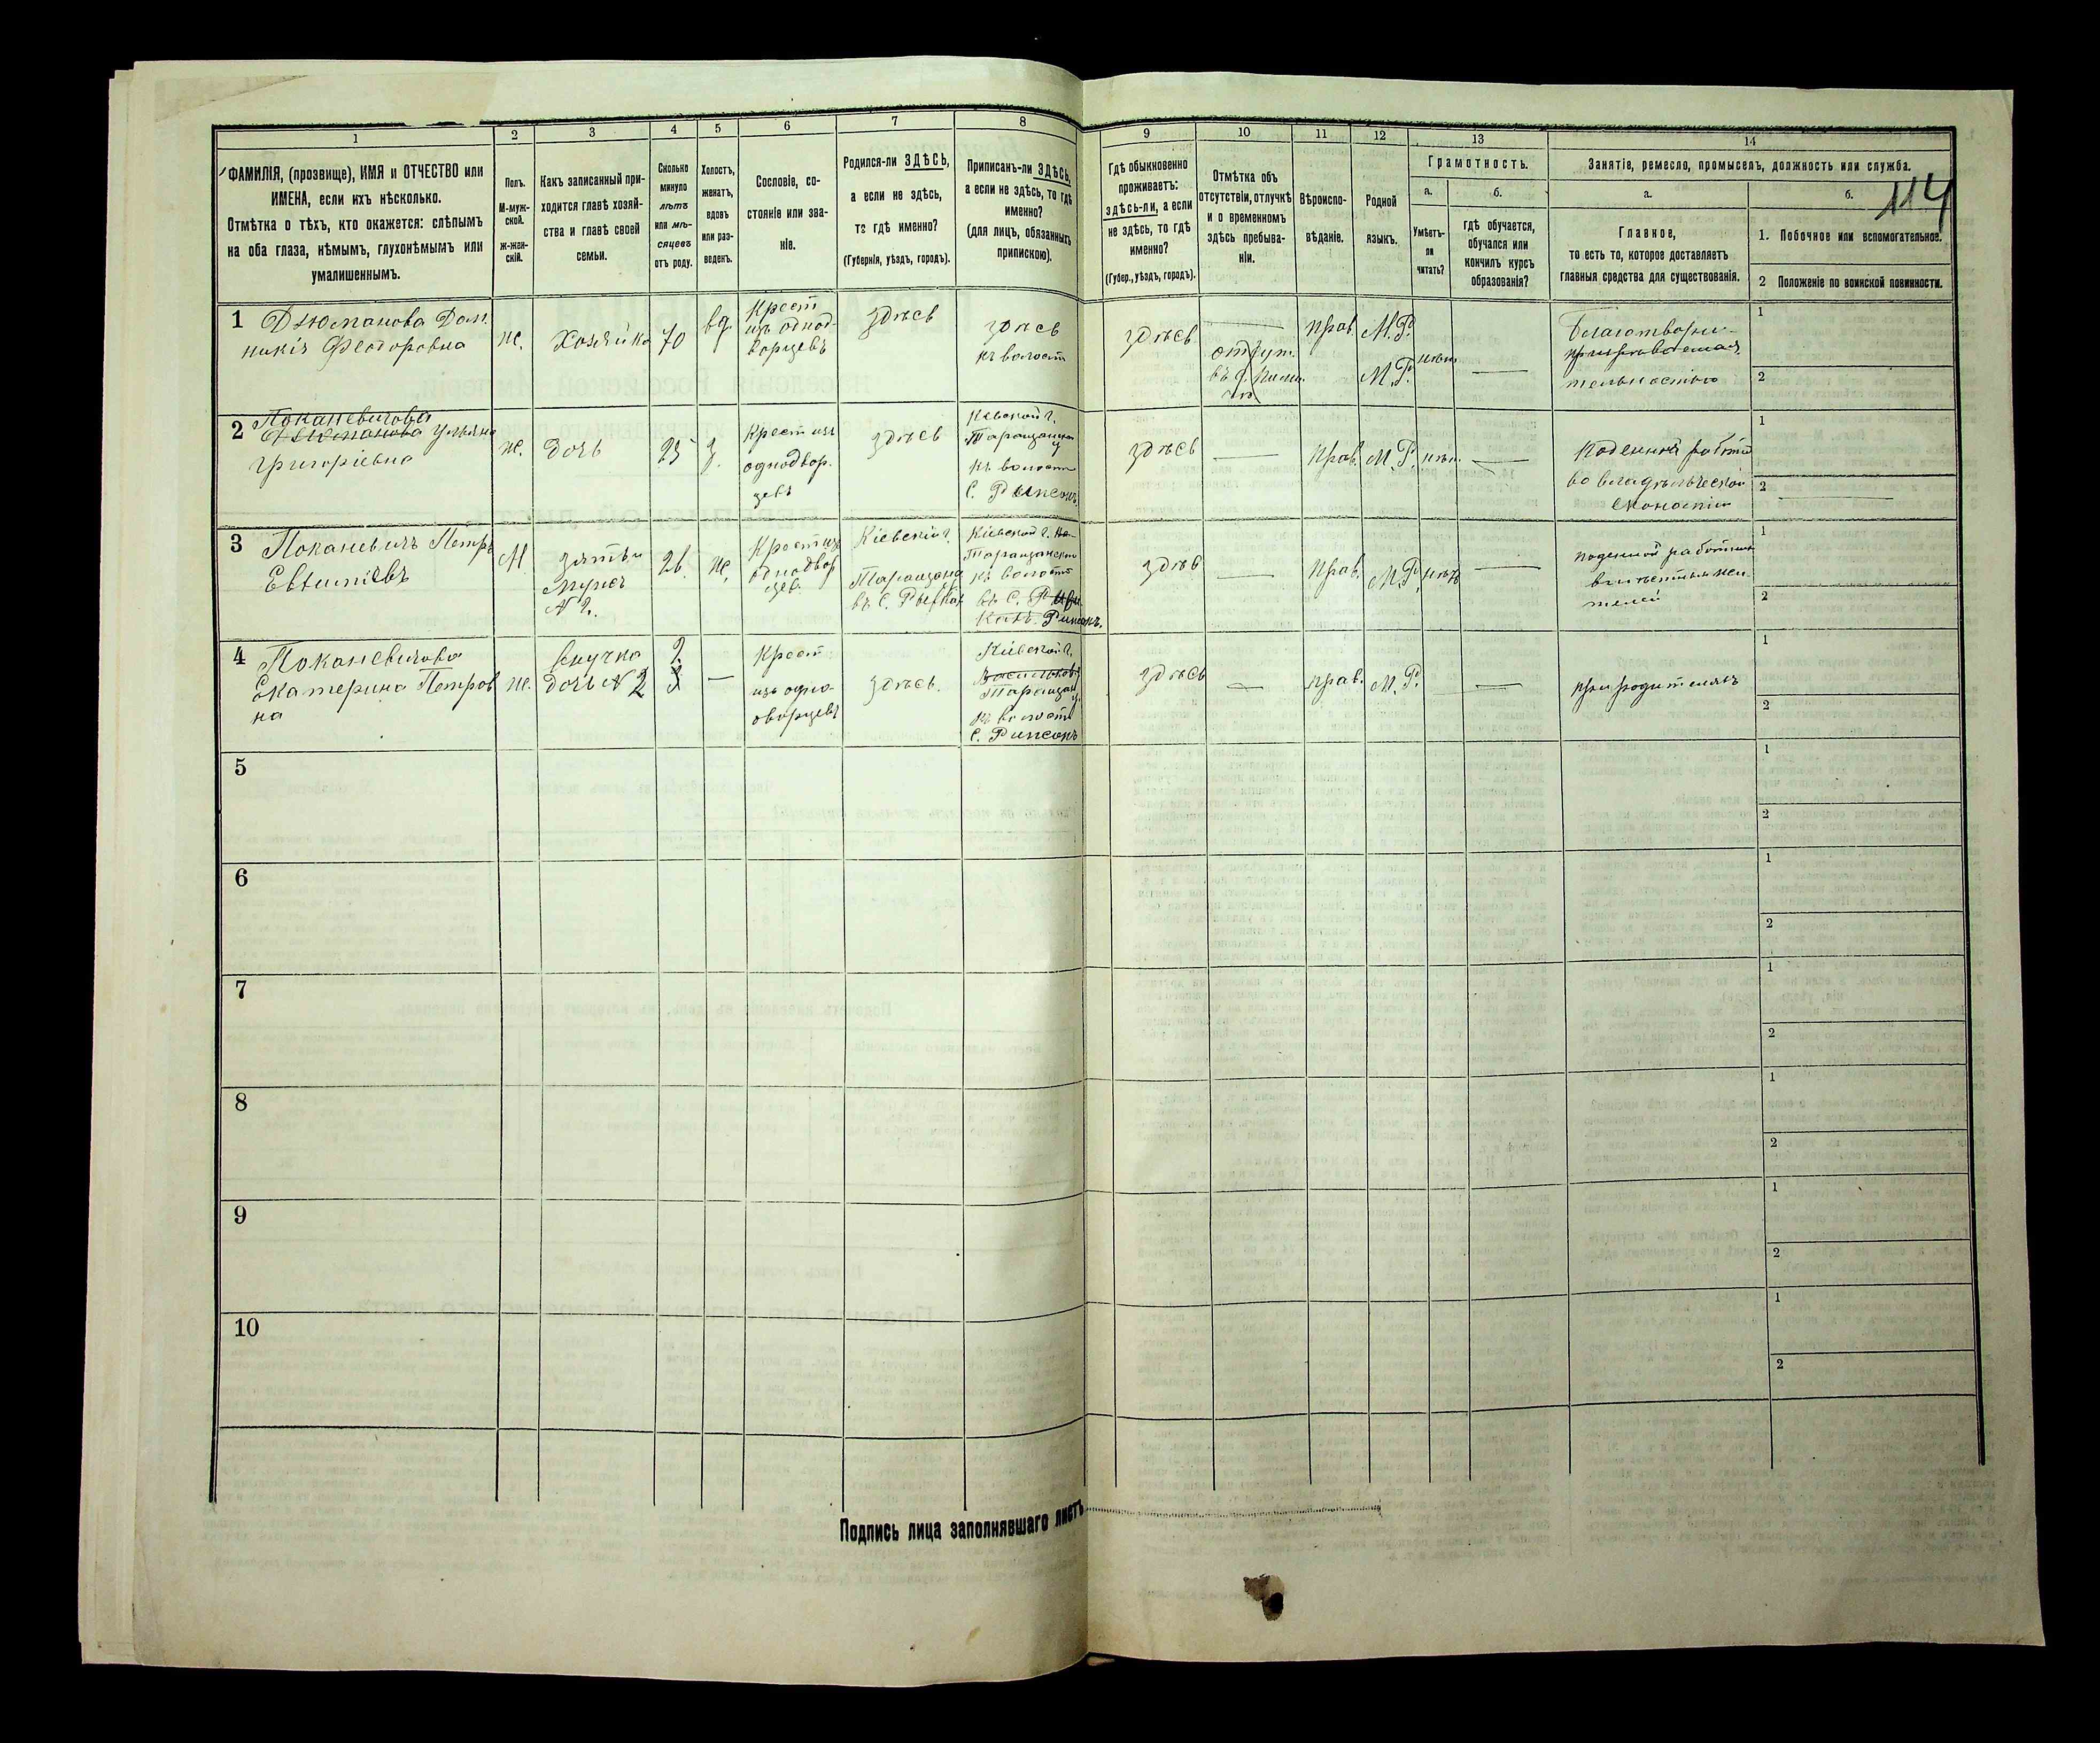 1
2
3
4
5
6
7
8
9
10
11
12
13
14
ФАМИЛІЯ, (прозвище), ИМЯ и ОТЧЕСТВО или
ИМЕНА, если ихъ нѣсколько.
Отмѣтка о тѣхъ, кто окажется: слѣпымъ
на оба глаза, нѣмымъ, глухонѣмымъ или
умалишеннымъ.
Полъ.
М-муж-
ской.
Ж-жен-
скій.
Какъ записанный при-
ходится главѣ хозяй-
ства и главѣ своей
семьи.
Сколько
минуло
лѣтъ
или мѣ-
сяцевъ
отъ роду.
Холостъ,
женатъ,
вдовъ
или раз-
веденъ.
Сословіе, со-
стояніе или зва-
ніе.
Родился-ли ЗДѢСЬ,
а если не здѣсь,
то гдѣ именно?
(Губернія, уѣздъ, городъ).
Приписанъ-ли ЗДѢСЬ,
а если не здѣсь, то гдѣ
именно?
(для лицъ, обязанныхъ
припискою).
Гдѣ обыкновенно
проживаетъ:
здѣсь-ли, а если
не здѣсь, то гдѣ
именно?
(Губер., уѣздъ, городъ).
Отмѣтка объ
отсутствіи, отлучкѣ
и о временномъ
здѣсь пребыва-
ніи.
Вѣроиспо-
вѣданіе.
Родной
языкъ.
Грамотность.
а.
Умѣетъ-
ли
читать?
б.
гдѣ обучается,
обучался или
кончилъ курсъ
образованія?
Занятіе, ремесло, промыселъ, должность или служба.
а.
Главное,
то есть то, которое доставляетъ
главныя средства для существованія.
б.
114
1. Побочное или вспомогательное.
2 Положеніе по воинской повинности.
1
Дюманова Дом-
никія Феодоровна
же.
Хозяйка
70
вд.
Крест
изъ однод-
ворцевъ
здѣсь
здѣсь
къ волост
здѣсь
прав.
М.Р.
М.Р.
нѣт
1
2
2
Поканевигова
Дюманова Ульяна
Григоріевна
же.
дочь
25
з.
Крест изъ
однодвор.
цевъ
здѣсь
Таращанск
къ волост
здѣсь
—
Прав.
М.Р.
нѣт
—
1
2
3
Поканевичъ Петръ
Евтиміевъ
М
зять и
мужъ
N 2.
26
же.
Крест изъ
однодвор
цев.
Кіевскій г.
Кіевской г.
Таращанск
къ волост
здѣсь
—
Прав.
М.Р.
нѣтъ
—
1
2
4
Поканевигова
Екатерина Петров
на
же.
внучка
дочь N 2
2
3
—
Крест
изъ одно-
дворцевъ
здѣсь.
Кіевской г.
Таращан
къ волост
здѣсь
—
прав.
М.Р.
—
при родителяхъ
1
2
5
1
2
6
1
2
7
1
2
8
1
2
9
1
2
10
1
2
Подпись лица заполнявшаго листъ